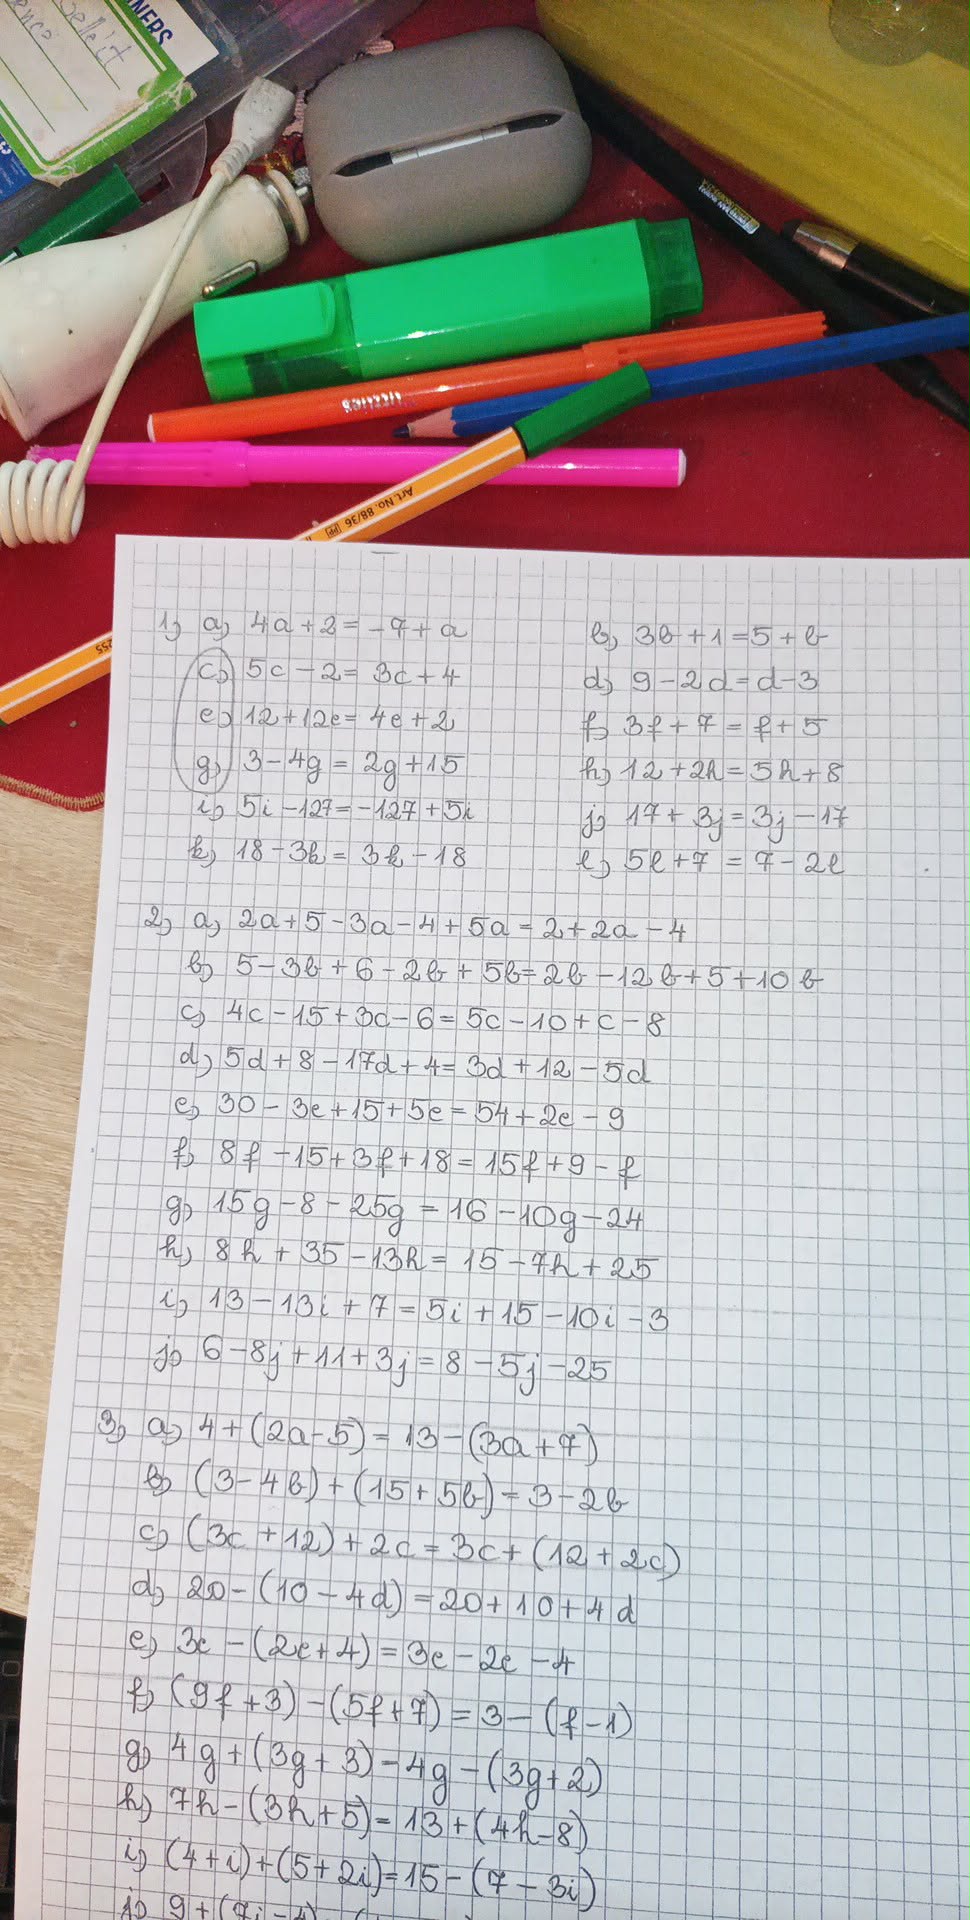 NNERS
Art. No. 88/36
255
1) a) 4a+2=-7+a b) 3b+1=5+b
c) 5c-2=3c+4 d) 9-2d=d-3
e) 12+12e=4e+2 f) 3f+7=f+5
g) 3-4g=2g+15 h) 12+2h=5h+8
i) 5i-127=-127+5i j) 17+3j=3j-17
k) 18-3k=3k-18 l) 5l+7=7-2l
2) a) 2a+5-3a-4+5a=2+2a-4
b) 5-3b+6-2b+5b=2b-12b+5+10b
c) 4c-15+3c-6=5c-10+c-8
d) 5d+8-17d+4=3d+12-5d
e) 30-3e+15+5e=54+2e-9
f) 8f-15+3f+18=15f+9-f
g) 15g-8-25g=16-10g-24
h) 8h+35-13h=15-7h+25
i) 13-13i+7=5i+15-10i-3
j) 6-8j+11+3j=8-5j-25
3) a) 4+(2a-5)=13-(3a+7)
b) (3-4b)+(15+5b)=3-2b
c) (3c+12)+2c=3c+(12+2c)
d) 20-(10-4d)=20+10+4d
e) 3e-(2e+4)=3e-2e-4
f) (9f+3)-(5f+7)=3-(f-1)
g) 4g+(3g+3)=4g-(3g+2)
h) 7h-(3h+5)=13+(4h-8)
i) (4+i)+(5+2i)=15-(7-3i)
j) 9+(7j-4)